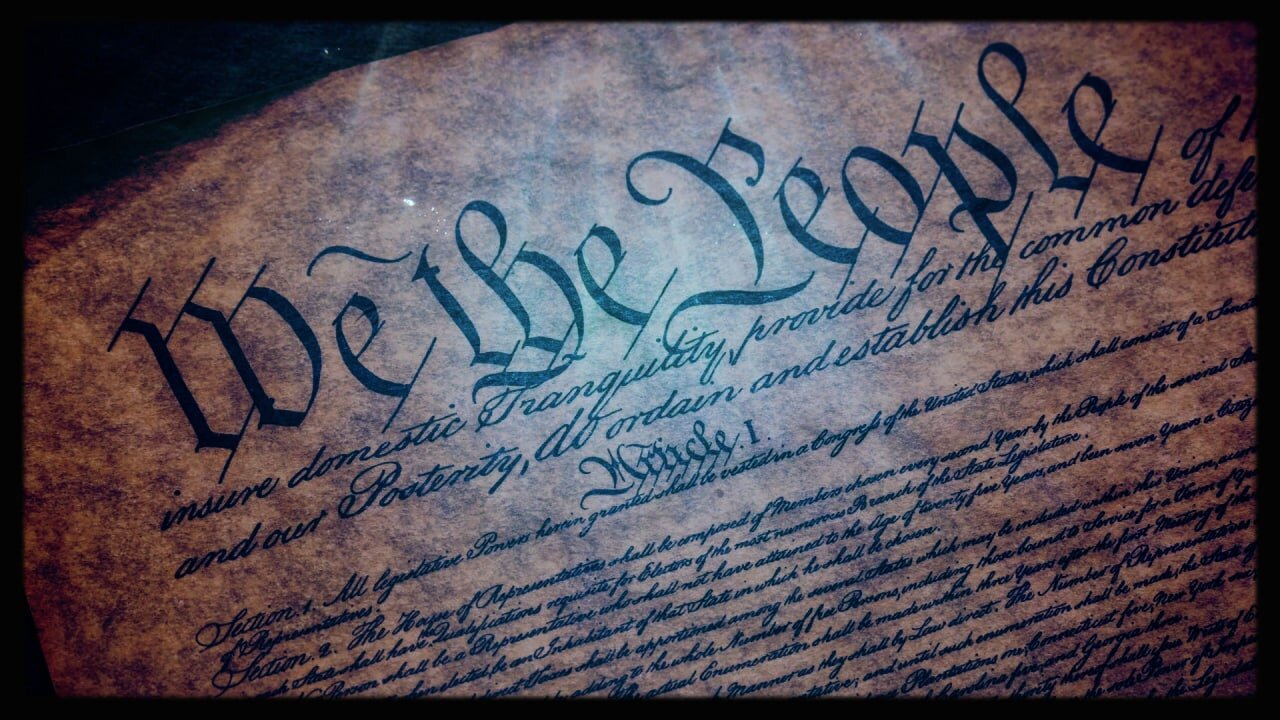 We the People of
insure domestic Tranquility, provide for the common
and our Posterity, do ordain and establish this
Article. I.
Section. 1. All legislative Powers herein granted shall be vested in a Congress of the United States, which shall consist of a
of Representatives.
Section. 2. The House of Representatives shall be composed of Members chosen every second Year by the People of the several
State shall have the Qualifications requisite for Electors of the most numerous Branch of the State Legislature.
Person shall be a Representative who shall not have attained to the Age of twenty five Years, and been seven Years a
elected, be an Inhabitant of that State in which he shall be chosen.
shall be apportioned among the several States which may be included within this Union,
adding to the whole Number of free Persons, including those bound to Service for a Term of
Enumeration shall be made within three Years after the first Meeting of the
Manner as they shall by Law direct. The Number of Representatives
and until such enumeration shall be made, the State of
Plantations one, Connecticut five, New York
and Georgia three.